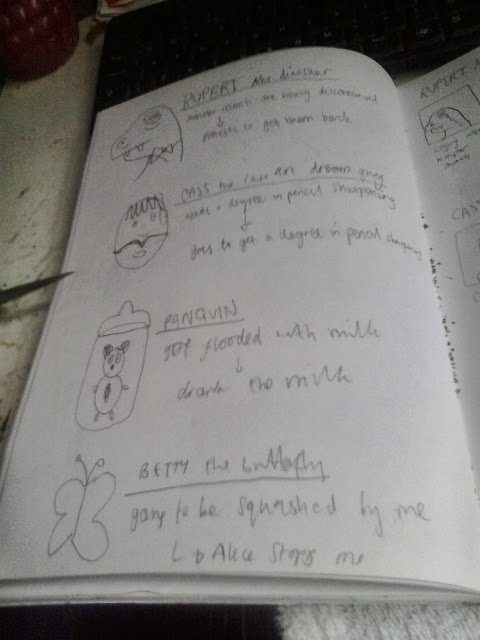 RUPERT the dinosaur
monster munch are being discontinued
protests to get them back
CASS the cave art dream guy
needs a degree in pencil sharpening
goes to get a degree in pencil sharpening
PANQUIN
got flooded with milk
drank the milk
BETTY the butterfly
going to be squashed by me
Alice stops me
RUPERT
CASS